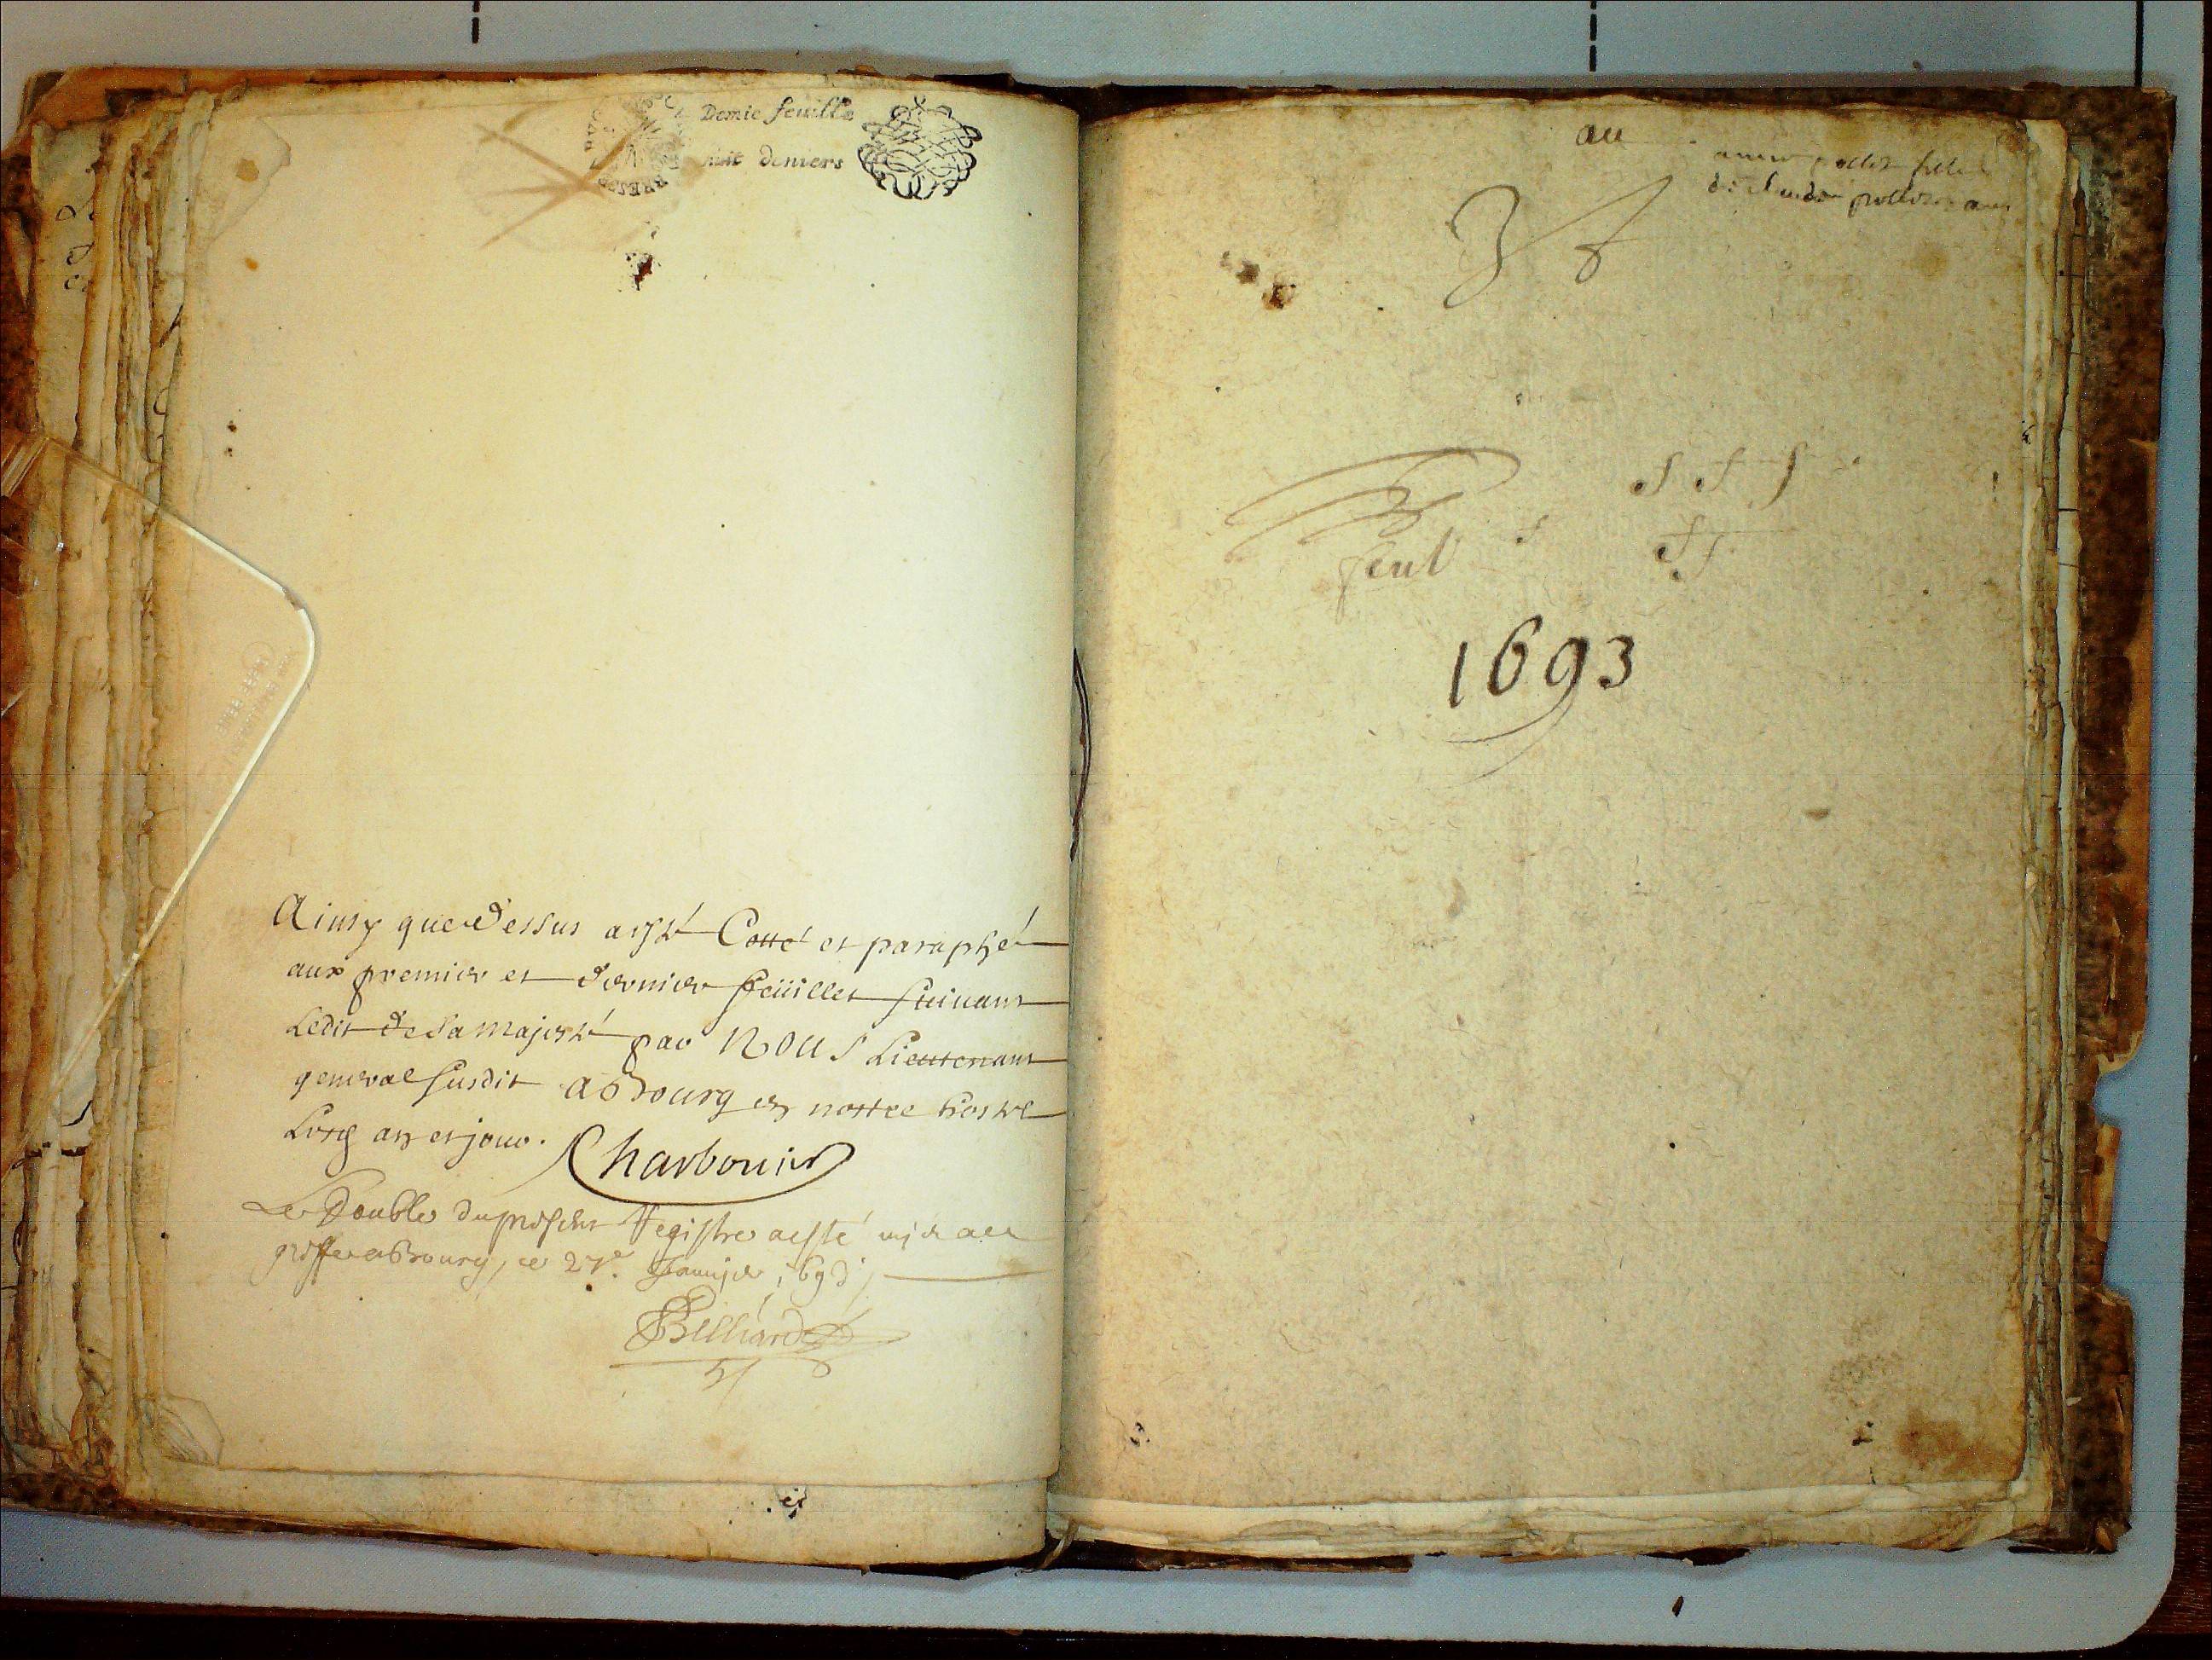 Demie feuille
huit deniers
Ainsy que dessus a esté Cotté et paraphé
aux premier et dernier feüillet suivant
Ledit de sa majesté par NOUS Lieutenant
general susdit a Bourg en nostre hostel
Lesd an et jour. Charbonier
Le Double du present Registre a esté mis au
greffe a Bourg, ce 27e. Janvier
Billiard
au
feul
1693